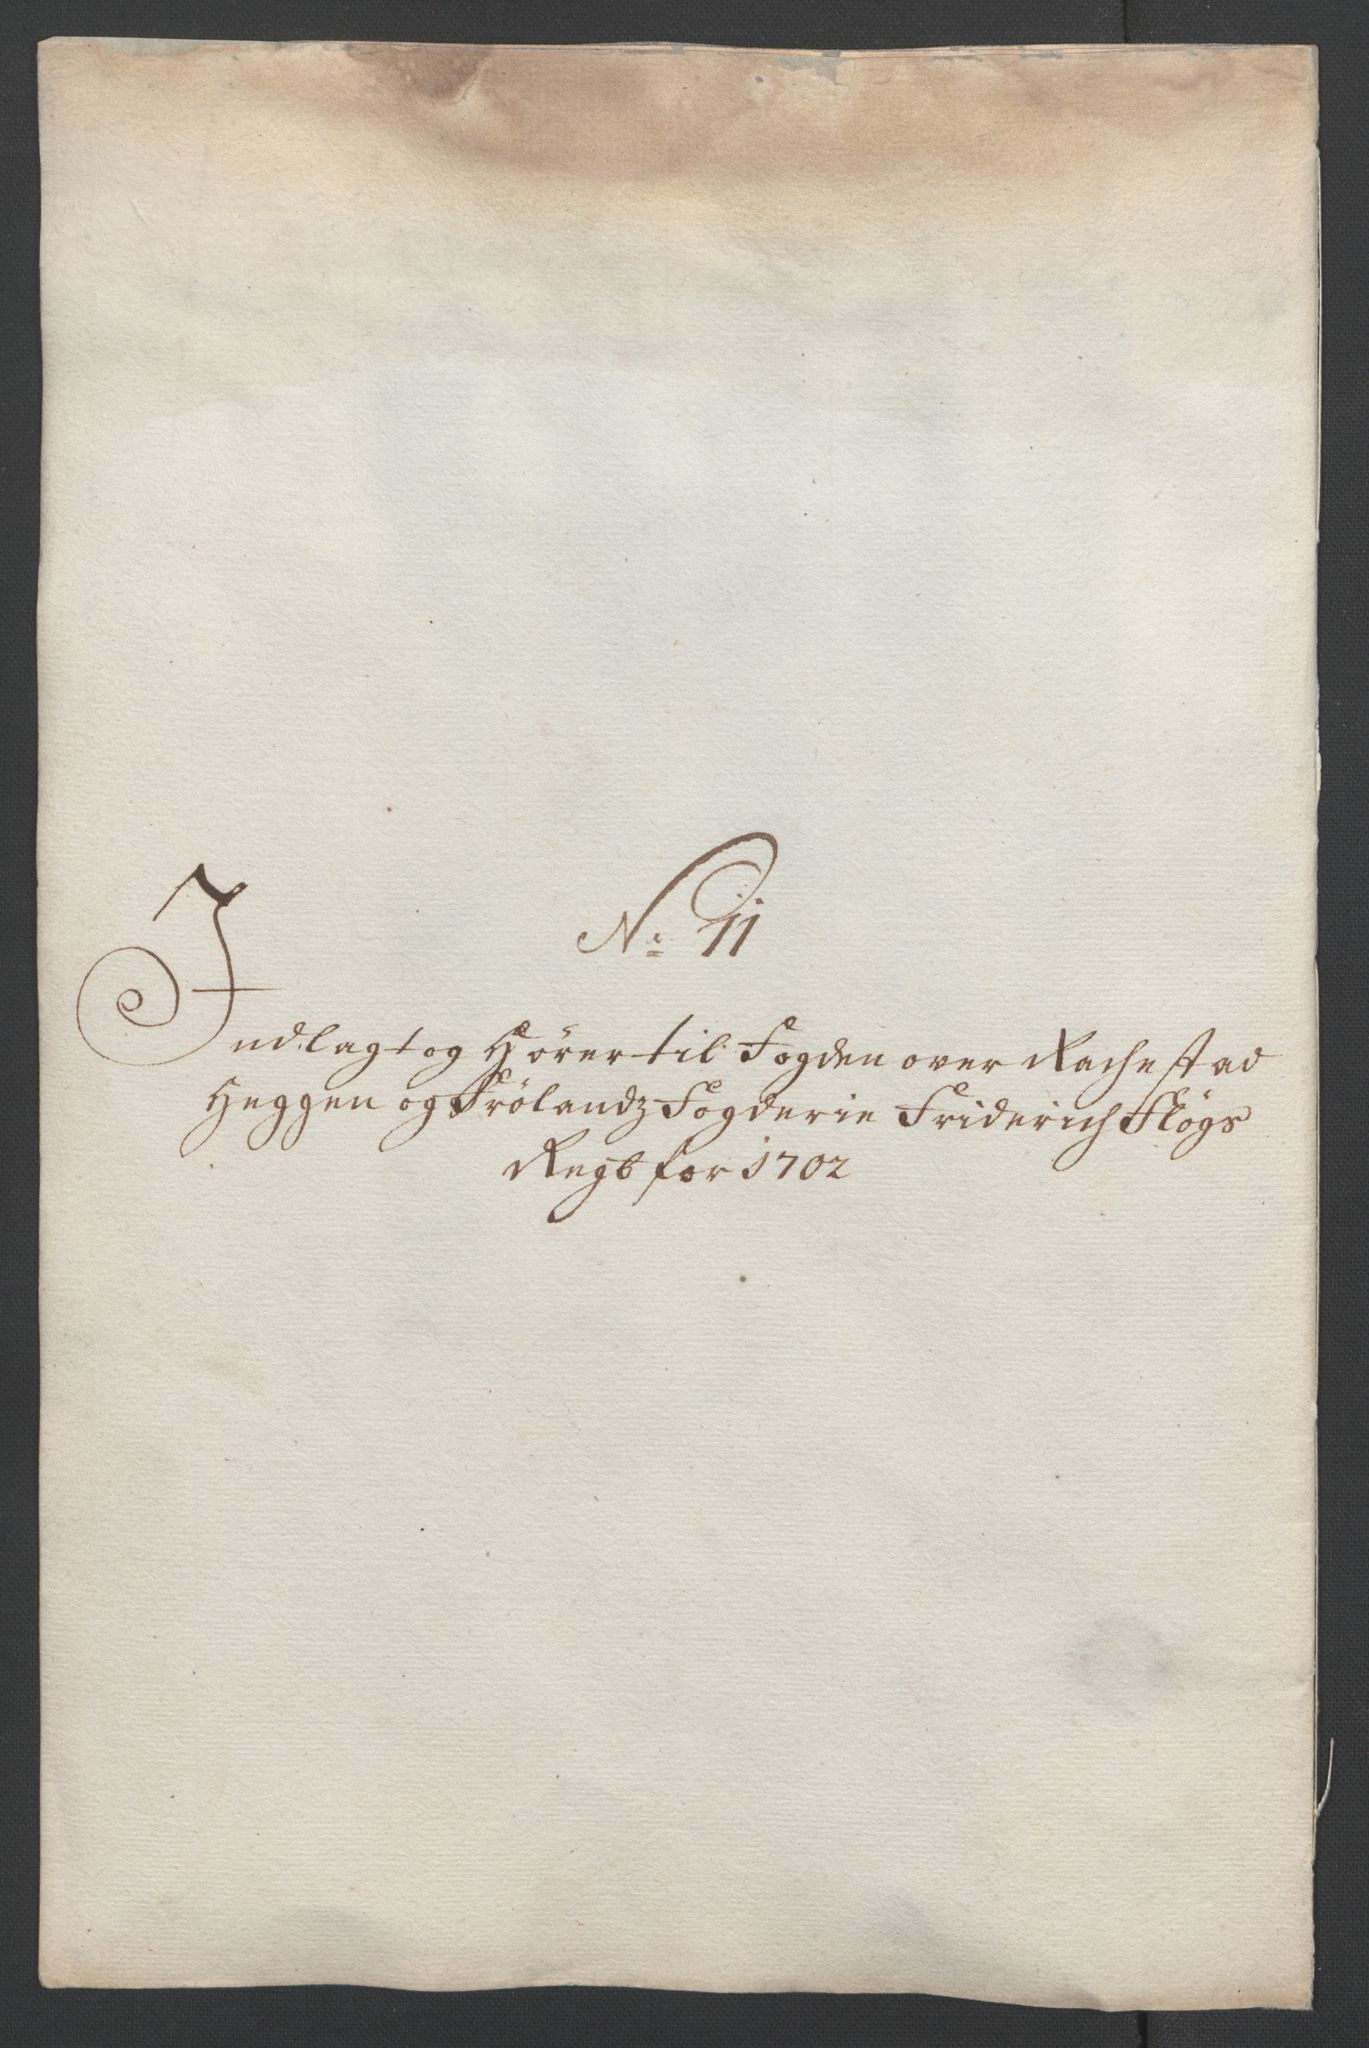 No: 11
Indlagt og Hörer til Fogden over Rachestad
Heggen og Frölandz Fogderie Friderich Flögs
Regb for 1702